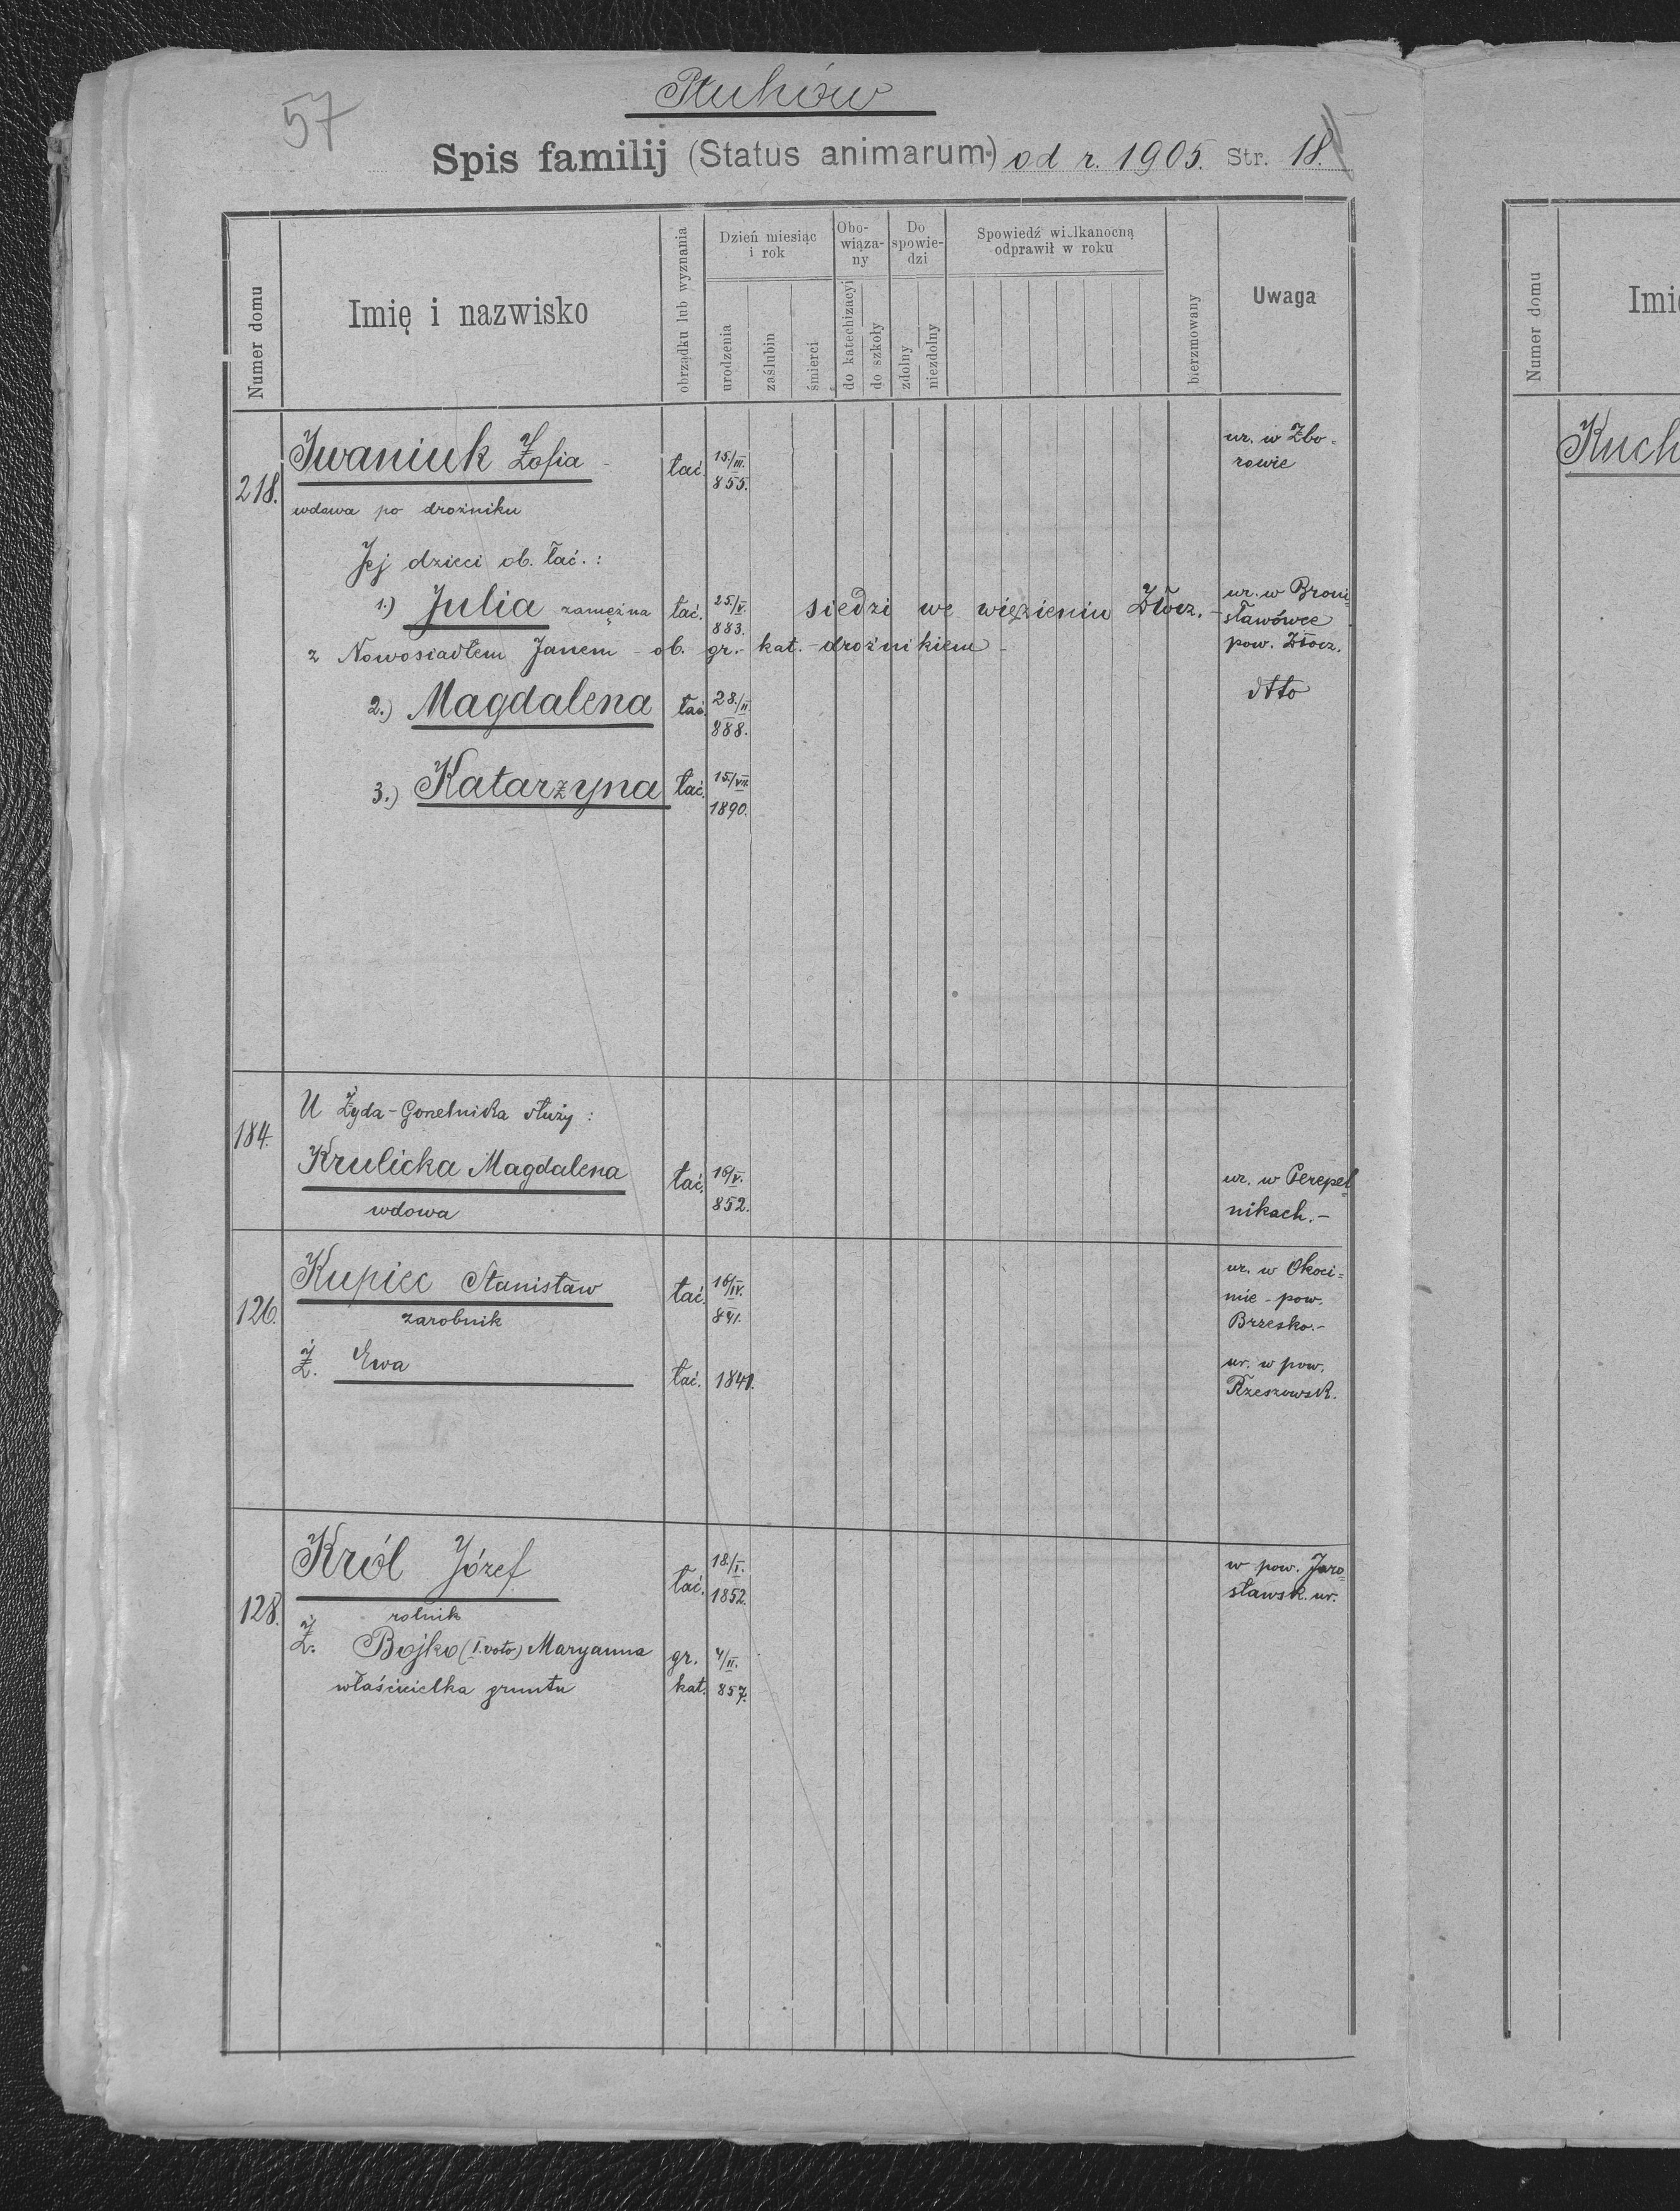 57
Płuhów
Spis familij (Status animarum) od r. 1905. Str. 18.
Numer domu
Imię i nazwisko
obrządku lub wyznania
Dzień miesiąc i rok
urodzenia
zaślubin
śmierci
Obo-wiąza-ny
do katechizacyi
do szkoły
Do spowie-dzi
zdolny
niezdolny
Spowiedź wielkanocną odprawił w roku
bierzmowany
Uwaga
218. Iwaniuk Zofia - łać. 15/III. 855. ur. w Zbo-
rowie
wdowa po drożniku
Jej dzieci ob. łać. :
1.) Julia zamężna łać. 25/V. 883. siedzi we więzieniu Złocz. - ur. w Broni-
sławówce
z Nowosiadłem Janem - ob. gr. - kat. - drożnikiem - pow. Złocz.
2.) Magdalena łać. 28./II 888. dtto
3.) Katarzyna łać. 15/VII. 1890.
184. U Żyda - Gonelnika służy :
Krulicka Magdalena łać. 16/V. 852. ur. w Perepel-
wdowa nikach. -
126. Kupiec Stanisław łać. 16/IV. 841. ur. w Okoci-
zarobnik mie - pow.
Brzesko. -
Ż. Ewa łać. 1841. ur. w pow.
Rzeszowsk.
128. Król Józef łać. 18./I. 1852. w pow. Jaro-
sławsk. ur.
rolnik
Ż. Bojko (I. voto) Maryanna gr. kat. 4/II. 857.
właścicielka gruntu
Numer domu
Imi
Kuch